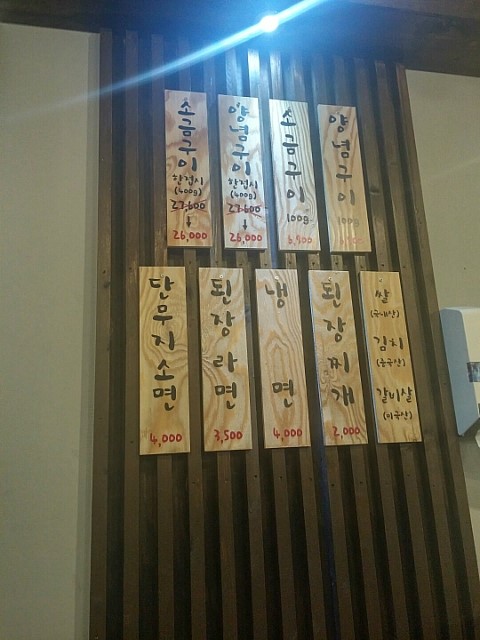 소금구이
한접시
(400g)
27,600
↓
26,000
양념구이
한접시
(400g)
27,600
↓
26,000
소금구이
100g
6,900
양념구이
100g
단무지소면
4,000
된장라면
3,500
냉면
4,000
된장찌개
2,000
쌀
(국내산)
김치
(중국산)
갈비살
(미국산)